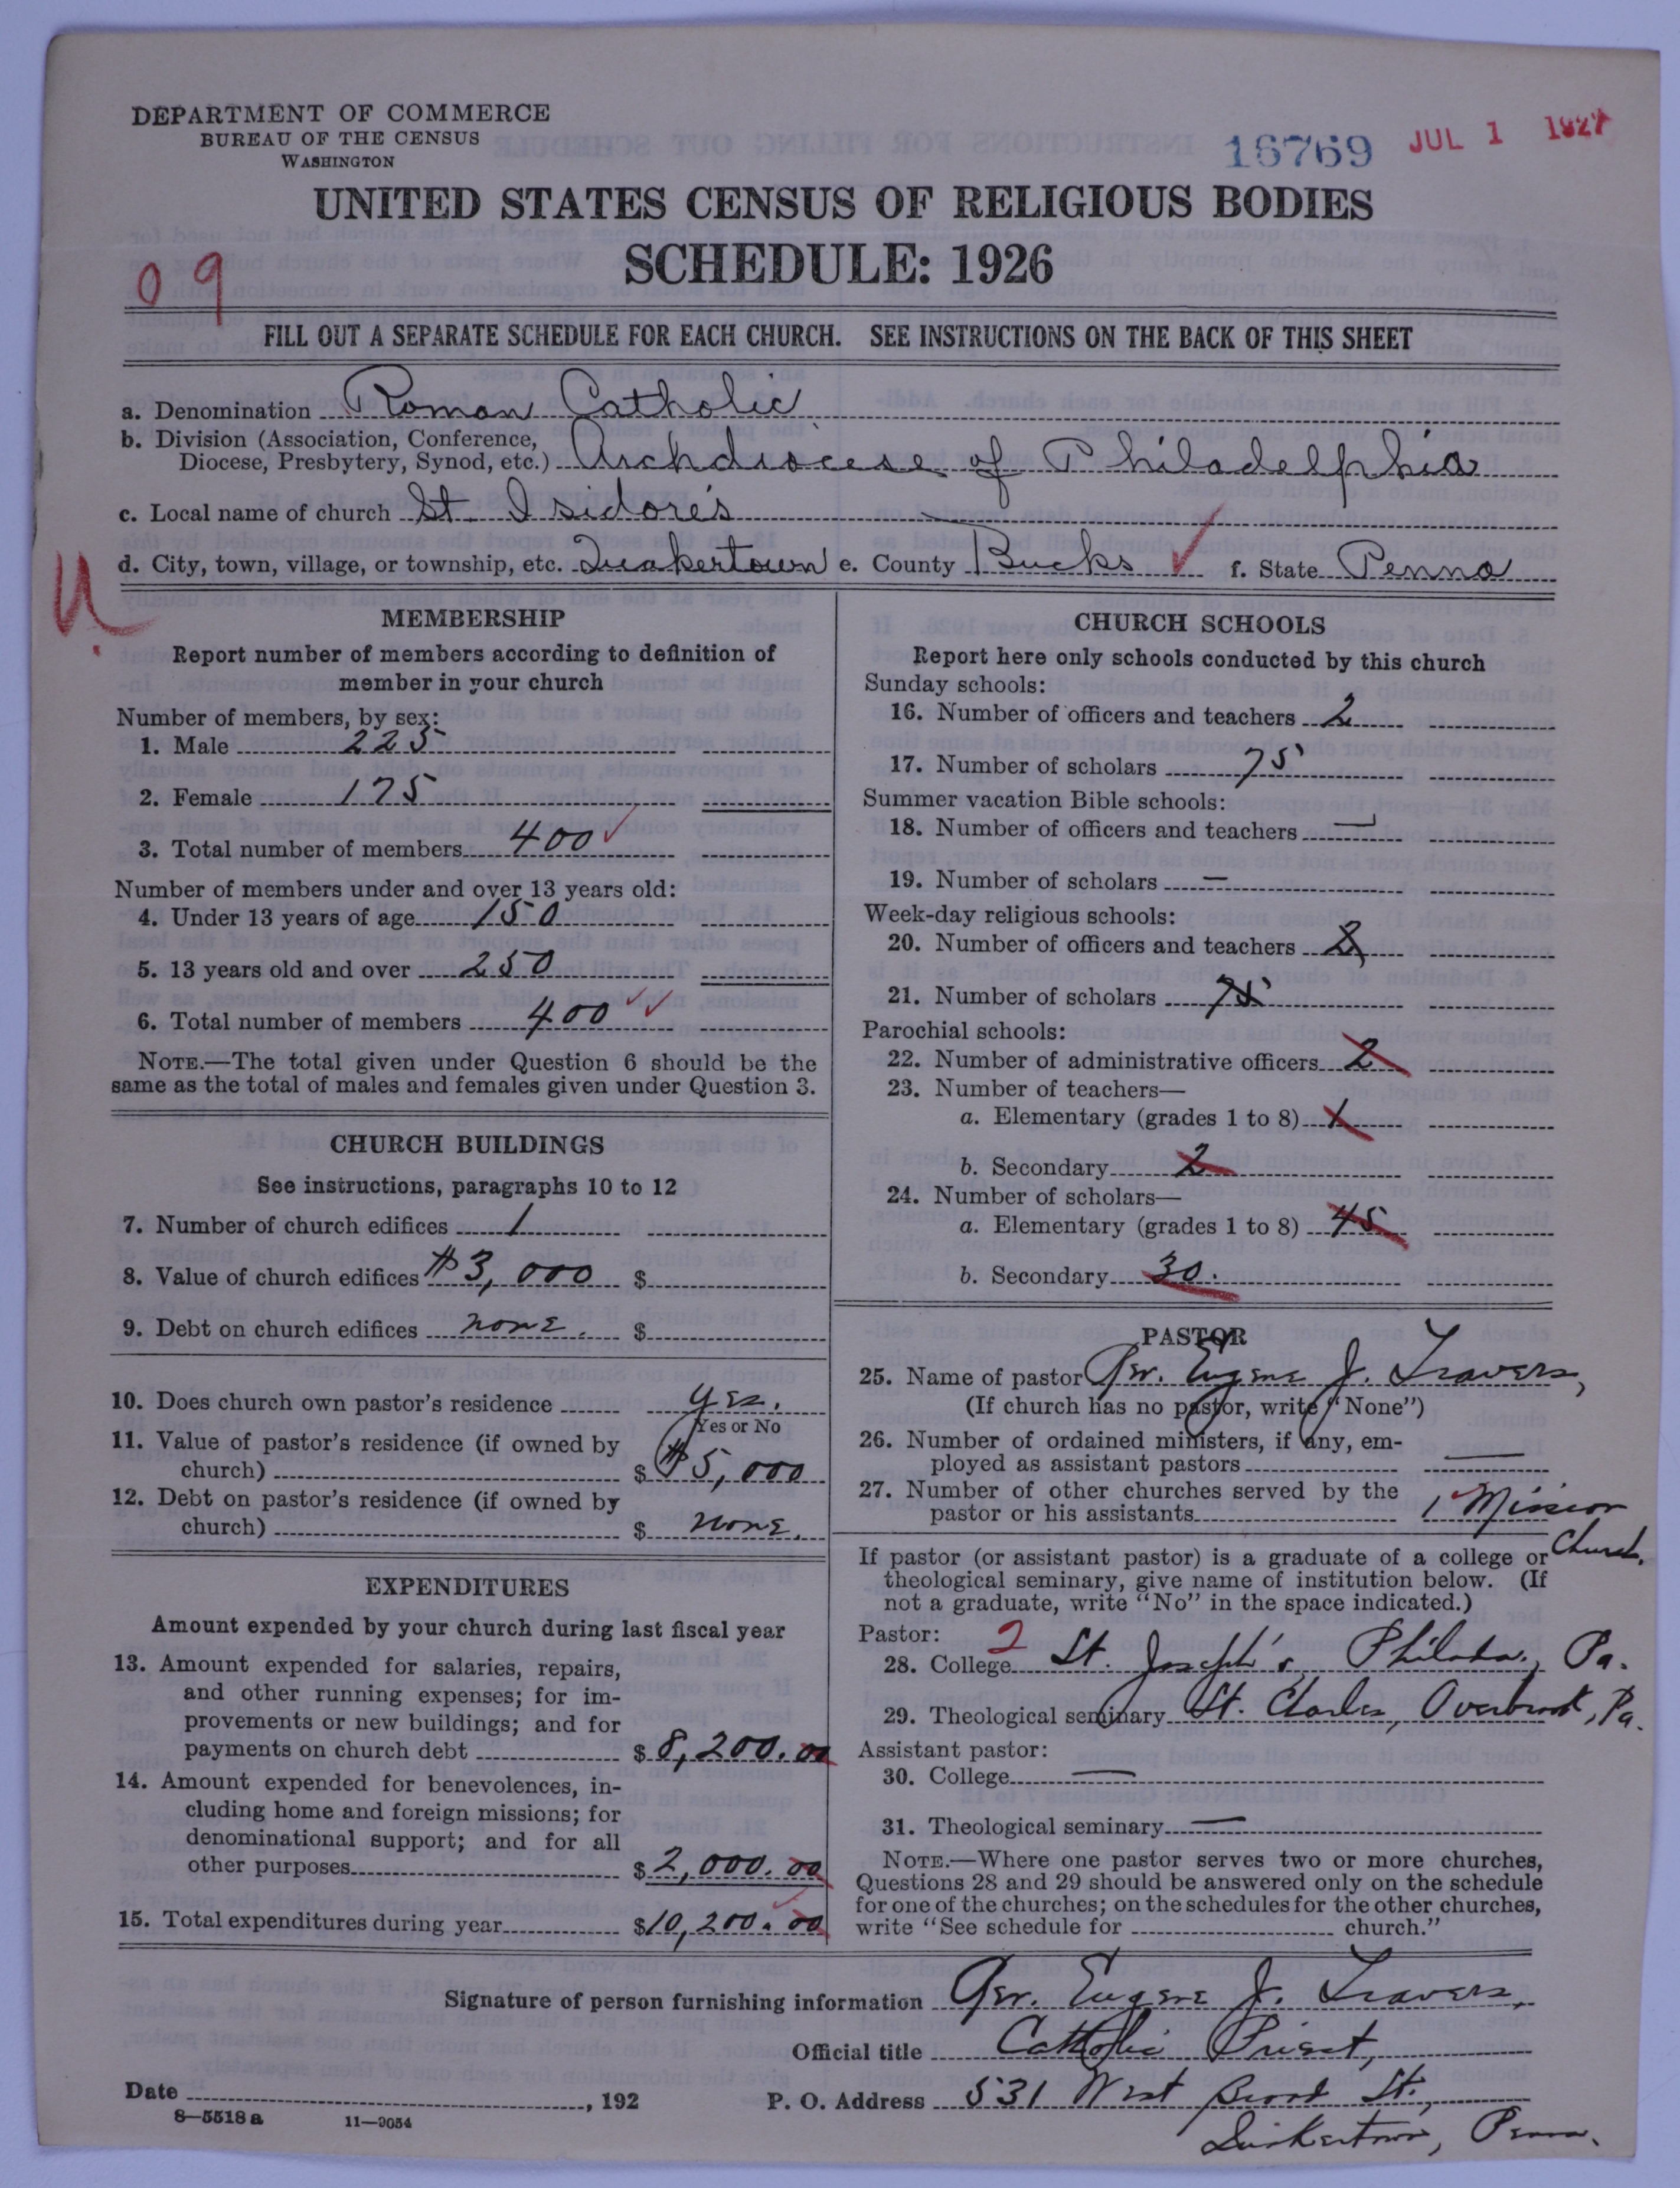 DEPARTMENT OF COMMERCE
BUREAU OF THE CENSUS
WASHINGTON
16769 JUL 1 1927
UNITED STATES CENSUS OF RELIGIOUS BODIES
SCHEDULE: 1926
09
FILL OUT A SEPARATE SCHEDULE FOR EACH CHURCH. SEE INSTRUCTIONS ON THE BACK OF THIS SHEET
a. Denomination Roman Catholic
b. Division (Association, Conference,
Diocese, Presbytery, Synod, etc.) Archdiocese of Philadelphia
c. Local name of church St. Isidore's
d. City, town, village, or township, etc. Quakertown e. County Bucks ✓ f. State Penna
U.
MEMBERSHIP
Report number of members according to definition of
member in your church
Number of members, by sex:
1. Male 225
2. Female 175
3. Total number of members 400 ✓
Number of members under and over 13 years old:
4. Under 13 years of age 150
5. 13 years old and over 250
6. Total number of members 400 ✓✓
NOTE.—The total given under Question 6 should be the
same as the total of males and females given under Question 3.
CHURCH BUILDINGS
See instructions, paragraphs 10 to 12
7. Number of church edifices 1
8. Value of church edifices $3,000 $
9. Debt on church edifices none. $
10. Does church own pastor's residence yes.
Yes or No
11. Value of pastor's residence (if owned by
church) $ $5,000
12. Debt on pastor's residence (if owned by
church) $ none.
EXPENDITURES
Amount expended by your church during last fiscal year
13. Amount expended for salaries, repairs,
and other running expenses; for im-
provements or new buildings; and for
payments on church debt $ 8,200.00
14. Amount expended for benevolences, in-
cluding home and foreign missions; for
denominational support; and for all
other purposes $ 2,000.00
15. Total expenditures during year $10,200.00
CHURCH SCHOOLS
Report here only schools conducted by this church
Sunday schools:
16. Number of officers and teachers 2
17. Number of scholars 75
Summer vacation Bible schools:
18. Number of officers and teachers —
19. Number of scholars —
Week-day religious schools:
20. Number of officers and teachers 2
21. Number of scholars 75
Parochial schools:
22. Number of administrative officers 2
23. Number of teachers—
a. Elementary (grades 1 to 8) 1
b. Secondary 2
24. Number of scholars—
a. Elementary (grades 1 to 8) 45
b. Secondary 30.
PASTOR
25. Name of pastor Rev. Eugene J. Travers,
(If church has no pastor, write "None")
26. Number of ordained ministers, if any, em-
ployed as assistant pastors —
27. Number of other churches served by the
pastor or his assistants 1 Mission
Church.
If pastor (or assistant pastor) is a graduate of a college or
theological seminary, give name of institution below. (If
not a graduate, write "No" in the space indicated.)
Pastor: 2
28. College St. Joseph's, Philada., Pa.
29. Theological seminary St. Charles, Overbrook, Pa.
Assistant pastor:
30. College —
31. Theological seminary —
NOTE.—Where one pastor serves two or more churches,
Questions 28 and 29 should be answered only on the schedule
for one of the churches; on the schedules for the other churches,
write "See schedule for church."
Signature of person furnishing information Rev. Eugene J. Travers,
Official title Catholic Priest,
Date , 192 P. O. Address 531 West Broad St.,
8—5518a 11—9054
Quakertown, Penna.